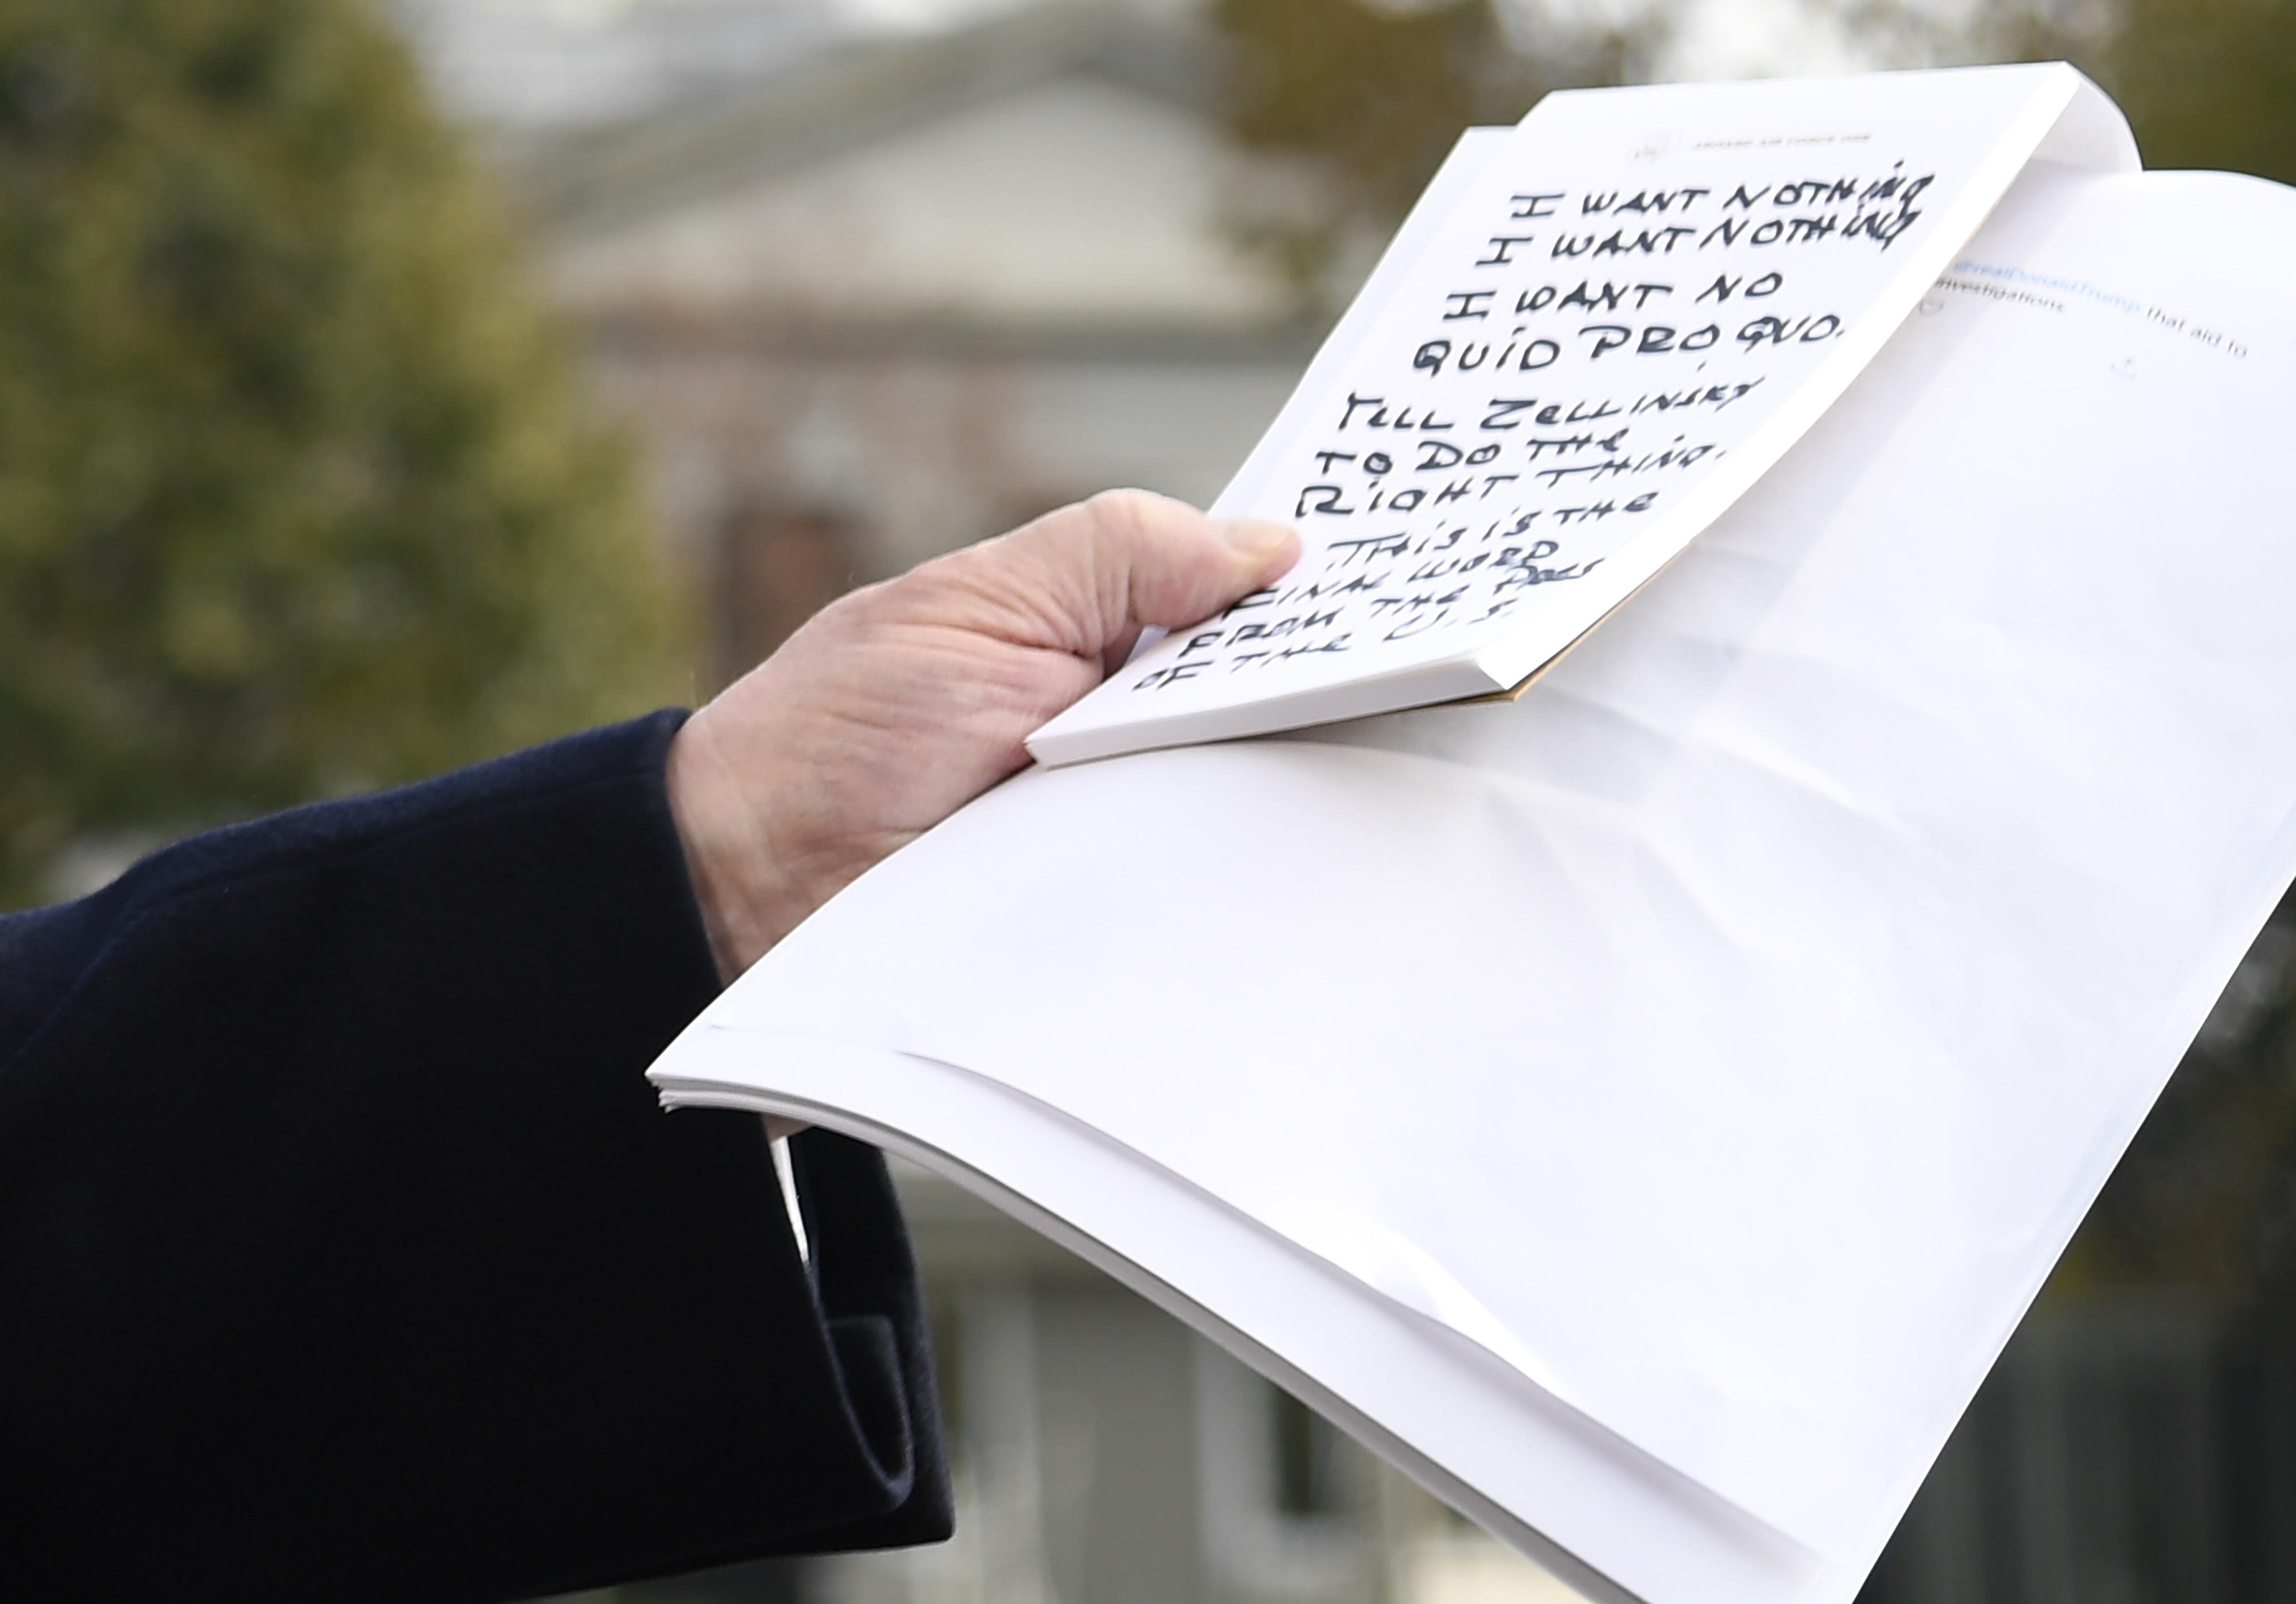 ABOARD AIR FORCE ONE
I WANT NOTHING
I WANT NOTHING
I WANT NO
QUID PRO QUO.
TELL ZELLINSKY
TO DO THE
RIGHT THING.
THIS IS THE
FINAL WORD
FROM THE PRES
OF THE U.S.
@realDonaldTrump that aid to
investigations.